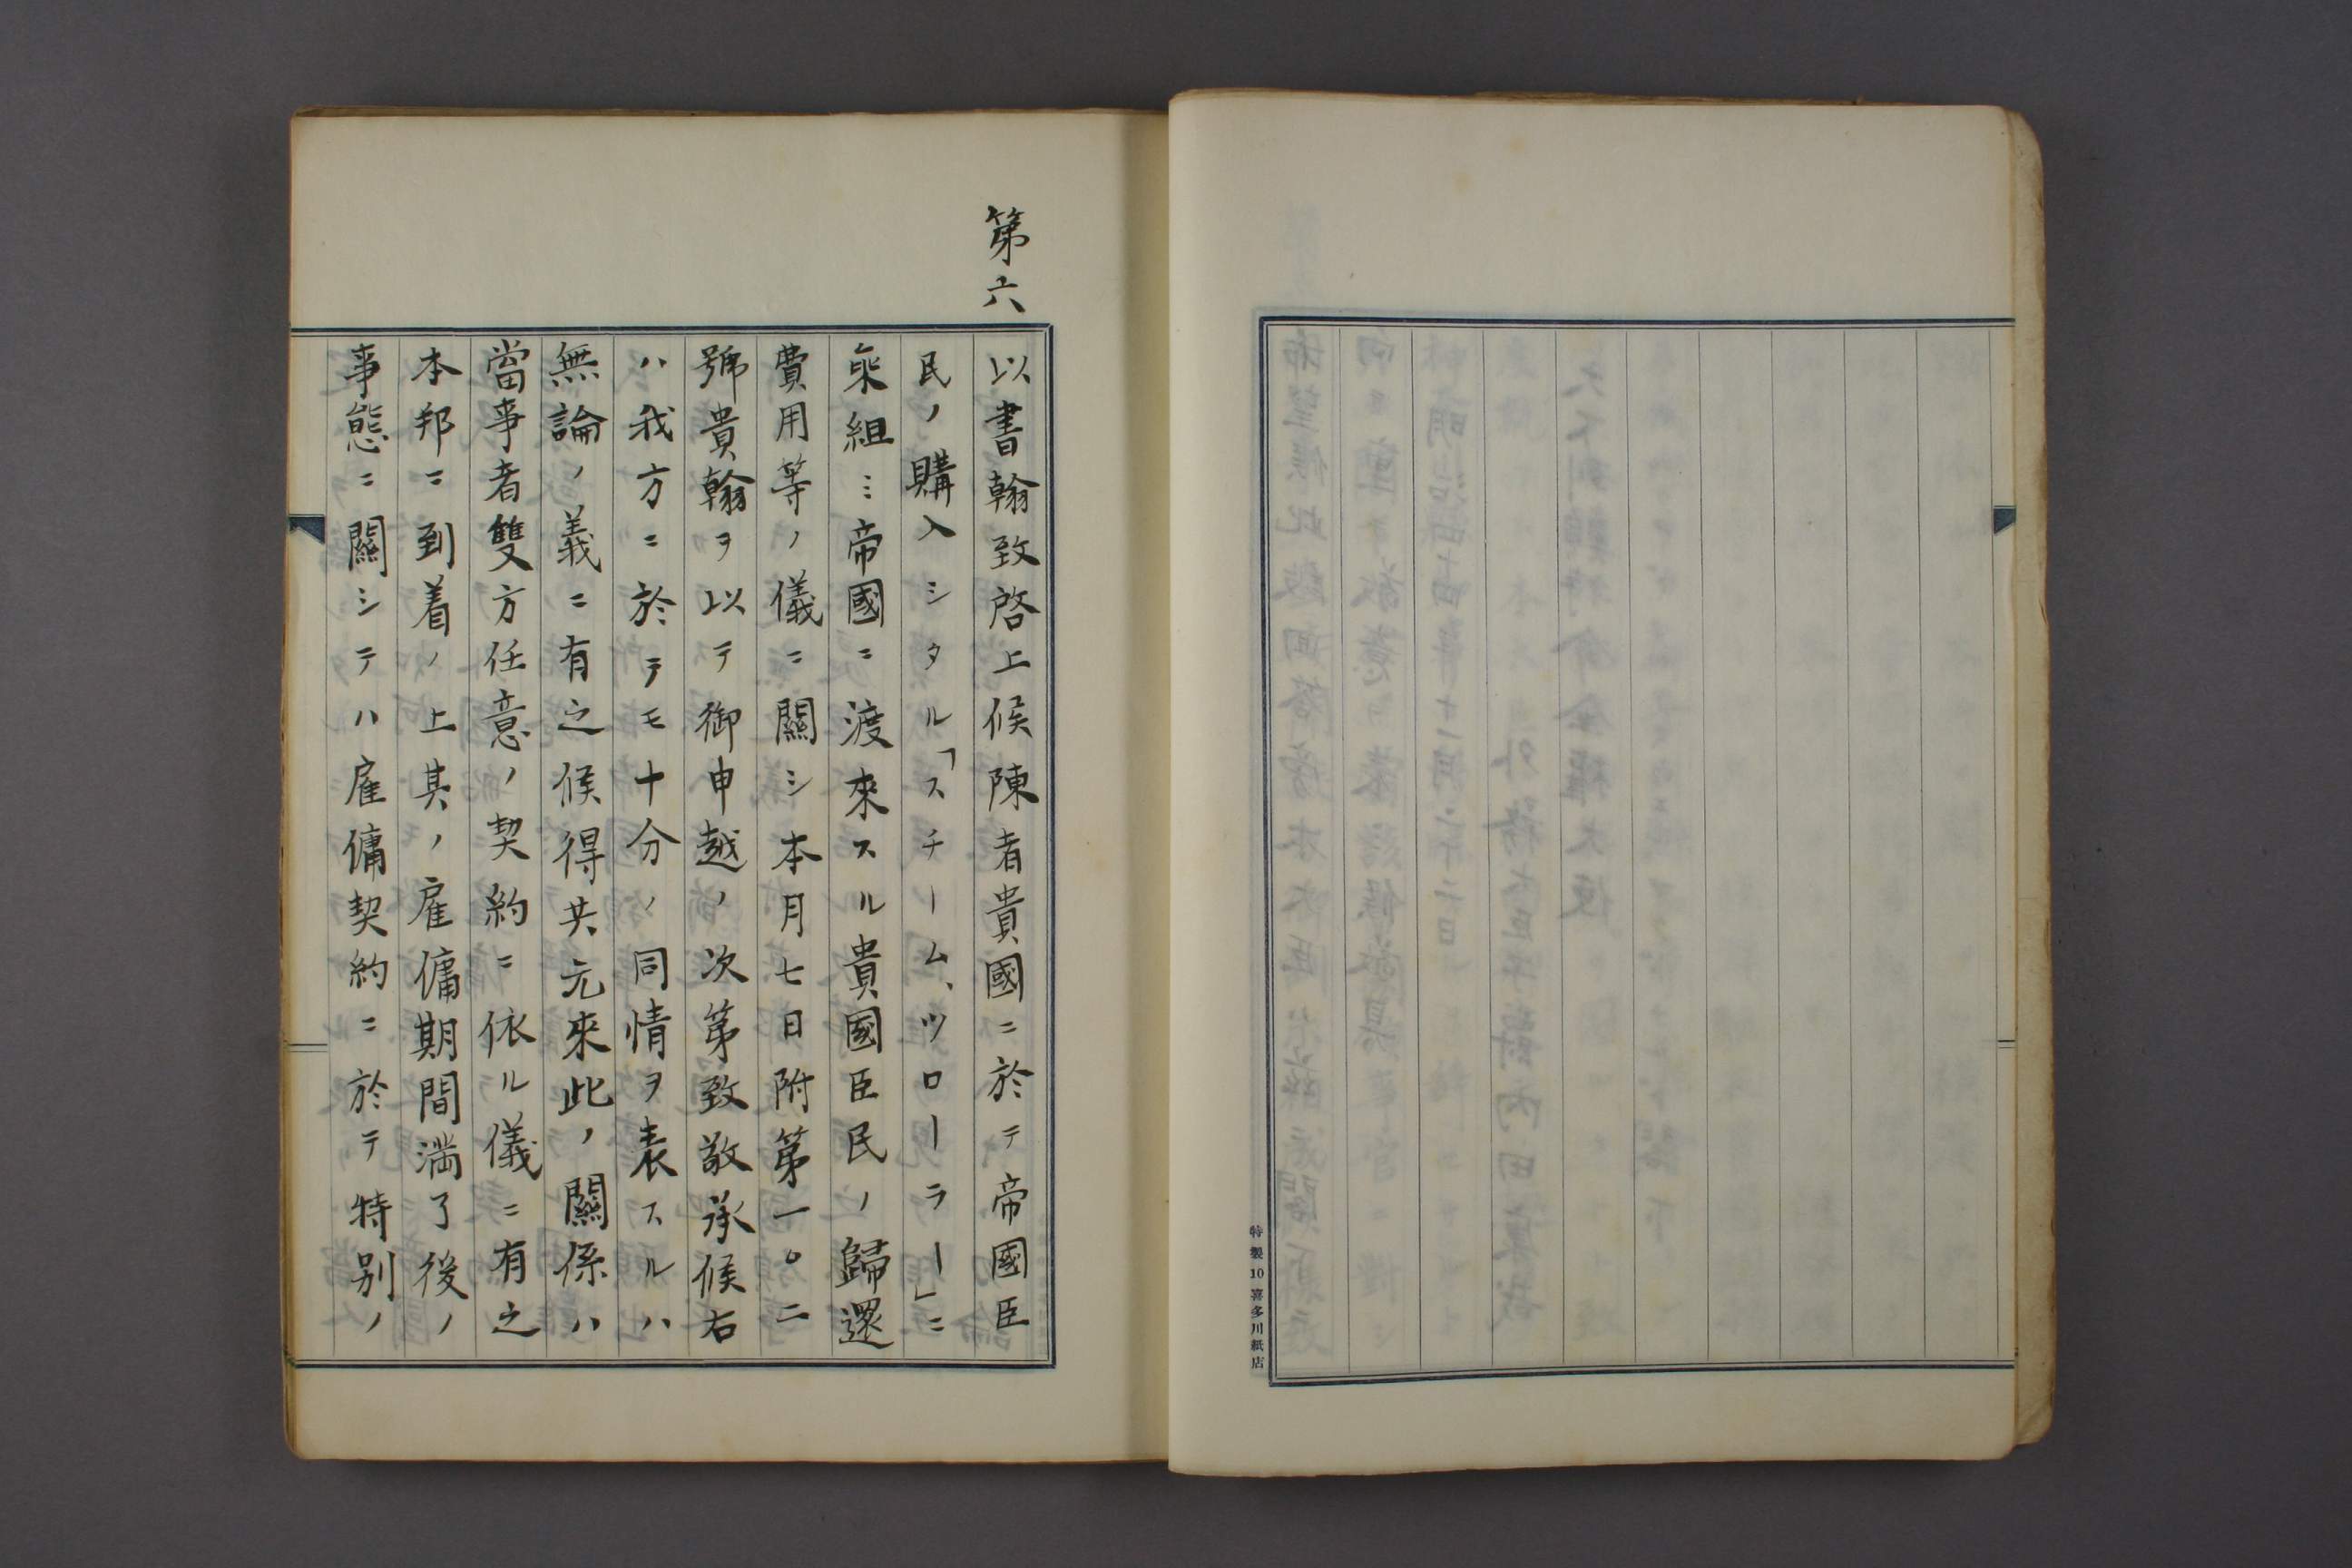 第六
以書翰致啓上候陳者貴國ニ於テ帝國臣
民ノ購入シタル「スチーム、ツローラー」ニ
乗組ミ帝國ニ渡來スル貴國臣民ノ歸還
費用等ノ儀ニ關シ本月七日附第一〇二
號貴翰ヲ以テ御申越ノ次第致敬承候右
ハ我方ニ於テモ十分ノ同情ヲ表スルハ
無論ノ義ニ有之候得共元來此ノ關係ハ
當事者雙方任意ノ契約ニ依ル儀ニ有之
本邦ニ到着ノ上其ノ雇傭期間満了後ノ
事態ニ關シテハ雇傭契約ニ於テ特別ノ
特製10喜多川紙店